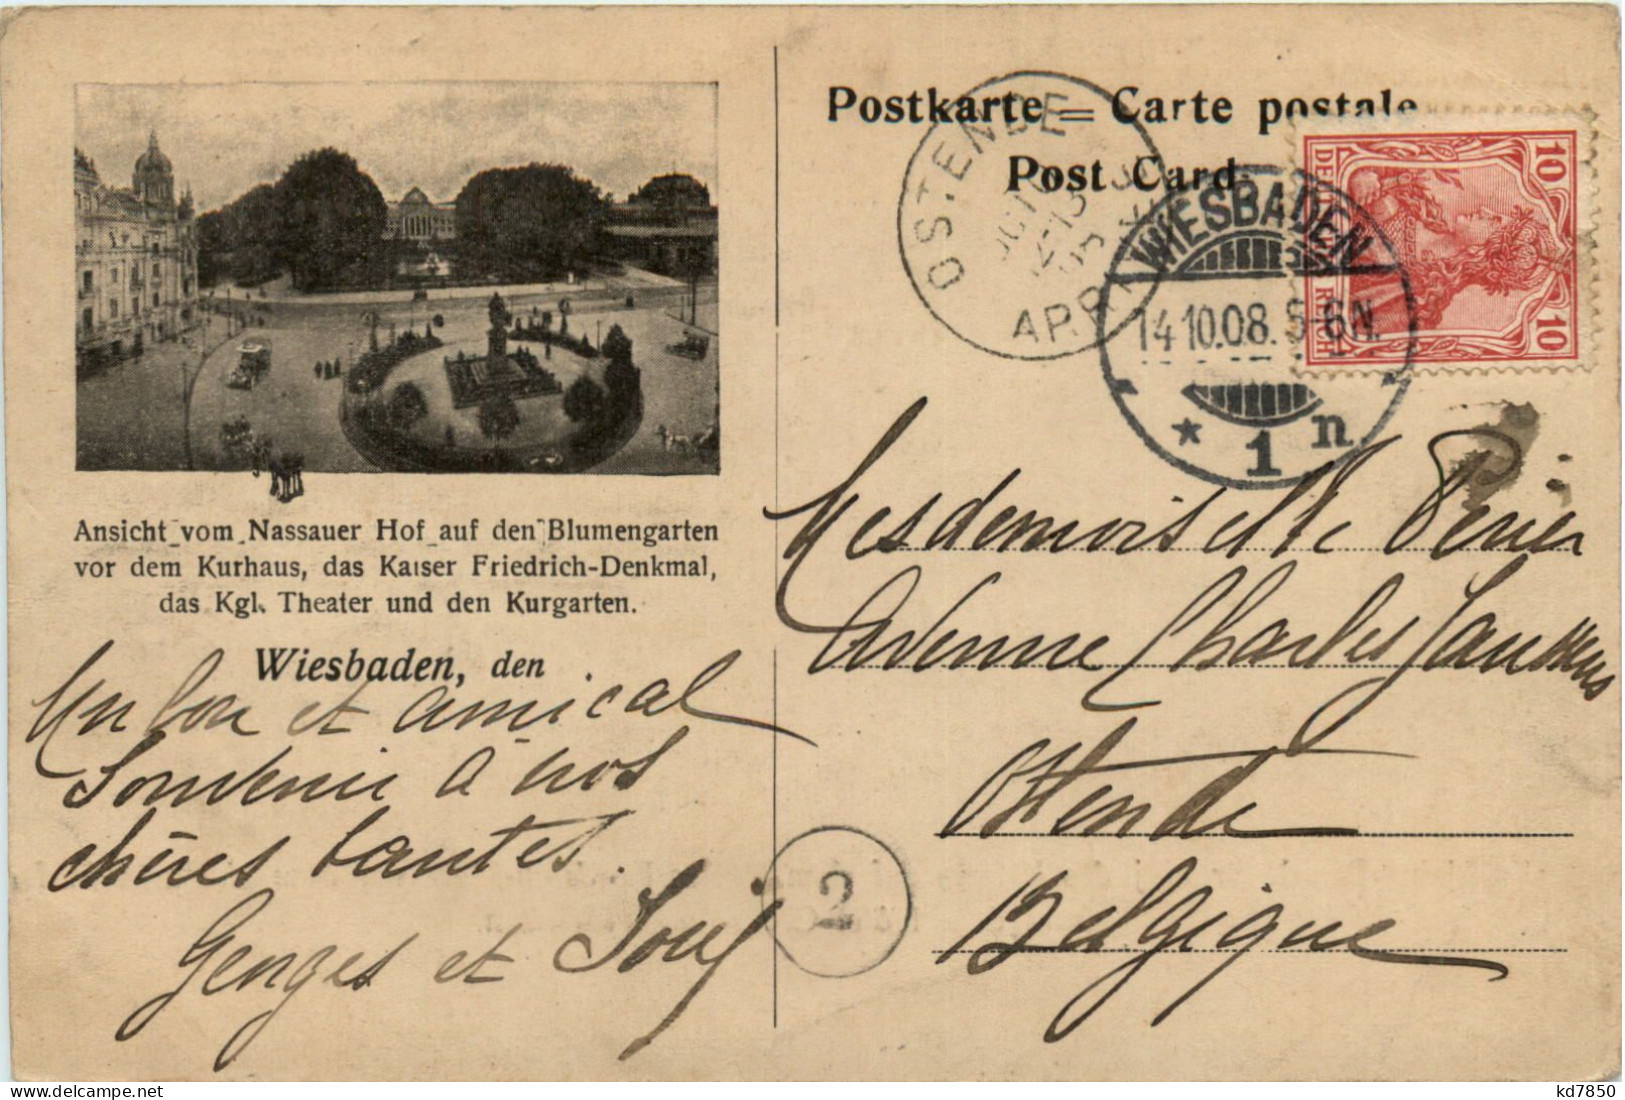 Postkarte = Carte postale
Post Card
OSTENDE
ARR
WIESBADEN
14.10.08. 5-6N.
* 1 n
10
10
DEUTSCHES REICH
Ansicht vom Nassauer Hof auf den Blumengarten
vor dem Kurhaus, das Kaiser Friedrich-Denkmal,
das Kgl. Theater und den Kurgarten.
Wiesbaden, den
Un bon et amical
Souvenir à nos
chères tantes.
Georges et
Mesdemoiselle Périer
Avenue Charles Janssens
Ostende
Belgique
2
kd7850